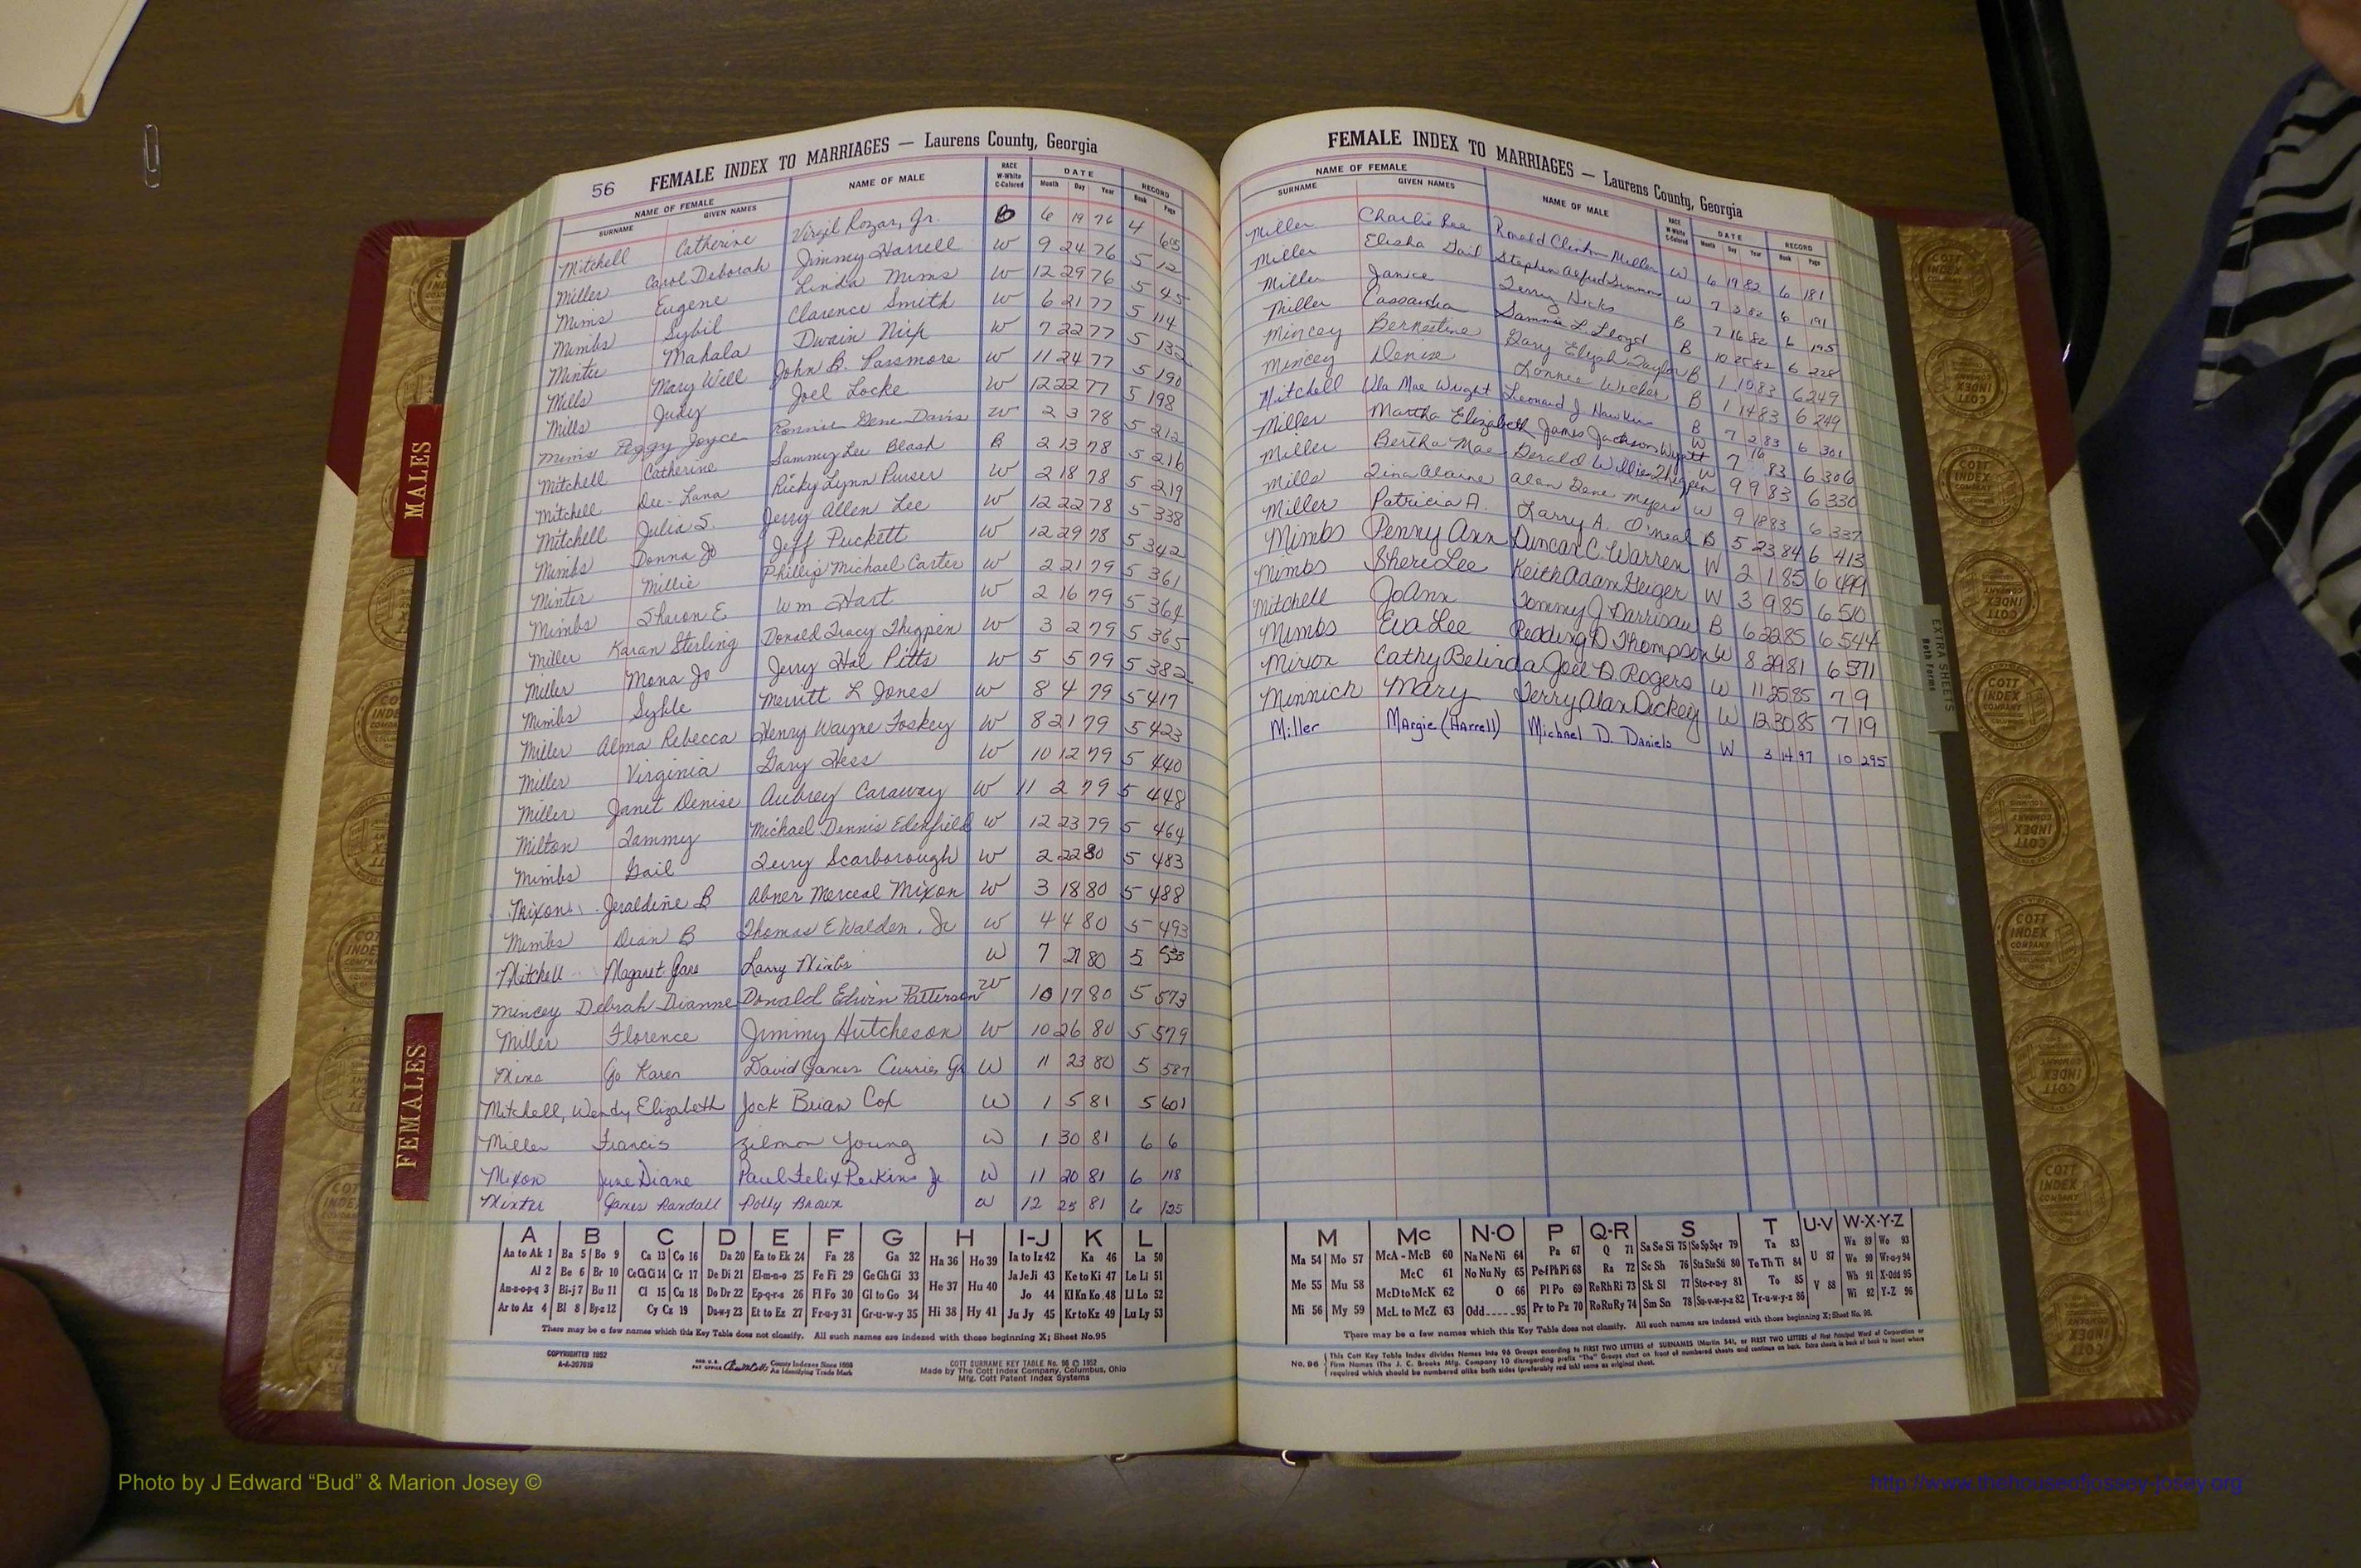 56 FEMALE INDEX TO MARRIAGES — Laurens County, Georgia
NAME OF FEMALE NAME OF MALE RACE W-White C-Colored DATE RECORD
SURNAME GIVEN NAMES Month Day Year Book Page
Mitchell Catherine Virgil Rozar, Jr. B 6 19 76 4 605
Miller Carol Deborah Jimmy Harrell W 9 24 76 5 12
Mims Eugene Linda Mims W 12 29 76 5 45
Mimbs Sybil Clarence Smith W 6 21 77 5 114
Minter Mahala Dwain Nix W 7 22 77 5 132
Mills Mary Will John B. Passmore W 11 24 77 5 190
Mills Judy Joel Locke W 12 22 77 5 198
Mims Peggy Joyce Ronnie Gene Davis W 2 3 78 5 212
Mitchell Catherine Sammy Lee Blash B 2 13 78 5 216
Mitchell Dee-Lana Ricky Lynn Purser W 2 18 78 5 219
Mitchell Julia S. Jerry Allen Lee W 12 22 78 5 338
Mimbs Donna Jo Jeff Puckett W 12 29 78 5 342
Minter Millie Phillip Michael Carter W 2 21 79 5 361
Mimbs Sharon E. Wm Hart W 2 16 79 5 364
Miller Karan Sterling Donald Tracy Thigpen W 3 2 79 5 365
Miller Mona Jo Jerry Hal Pitts W 5 5 79 5 382
Mimbs Syble Merritt L Jones W 8 4 79 5 417
Miller Alma Rebecca Henry Wayne Foskey W 8 21 79 5 423
Miller Virginia Gary Hess W 10 12 79 5 440
Miller Janet Denise Aubrey Caraway W 11 2 79 5 448
Milton Tammy Michael Dennis Edenfield W 12 23 79 5 464
Mimbs Gail Terry Scarborough W 2 22 80 5 483
Mixon Jeraldine B Abner Merceal Mixon W 3 18 80 5 488
Mimbs Dian B Thomas E Walden, Jr W 4 4 80 5 493
Mitchell Magaret Jane Larry W 7 21 80 5 533
Mincey Debrah Dianne Donald Edwin Patterson W 10 17 80 5 573
Miller Florence Jimmy Hutcheson W 10 26 80 5 579
Jo Karen David James Currie, Jr W 11 23 80 5 587
Mitchell, Wendy Elizabeth Jock Brian Cox W 1 5 81 5 601
Miller Francis Zilmon Young W 1 30 81 6 6
Mixon June Diane Paul Felix Perkins Jr W 11 20 81 6 118
James Randall Polly Brown W 12 25 81 6 125
A B C D E F G H I-J K L
Aa to Ak 1 Ba 5 Bo 9 Ca 13 Co 16 Da 20 Ea to Ek 24 Fa 28 Ga 32 Ha 36 Ho 39 Ia to Iz 42 Ka 46 La 50
Al 2 Be 6 Br 10 Ce Ch Ci 14 Cr 17 De Di 21 El-m-n-o 25 Fe Fi 29 Ge Gh Gi 33 Ja Je Ji 43 Ke to Ki 47 Le Li 51
Am-n-o-p-q 3 Bi-j 7 Bu 11 Cl 15 Cu 18 Do Dr 22 Ep-q-r-s 26 Fl Fo 30 Gl to Go 34 He 37 Hu 40 Jo 44 Kl Kn Ko 48 Ll Lo 52
Ar to Az 4 Bl 8 By-z 12 Cy Cz 19 Du-w-y 23 Et to Ez 27 Fr-u-y 31 Gr-u-w-y 35 Hi 38 Hy 41 Ju Jy 45 Kr to Kz 49 Lu Ly 53
There may be a few names which this Key Table does not classify. All such names are indexed with those beginning X; Sheet No.95
COPYRIGHTED 1952
A-A-207619
REG. U.S. PAT OFFICE County Indexes Since 1888 An Identifying Trade Mark
COTT SURNAME KEY TABLE No. 96 © 1952
Made by The Cott Index Company, Columbus, Ohio
Mfg. Cott Patent Index Systems
FEMALE INDEX TO MARRIAGES — Laurens County, Georgia
NAME OF FEMALE NAME OF MALE RACE W-White C-Colored DATE RECORD
SURNAME GIVEN NAMES Month Day Year Book Page
Miller Charlie Lee Ronald Clinton Miller W 6 19 82 6 181
Miller Elisha Gail Stephen Alfred Simmons W 7 3 82 6 191
Miller Janice Terry Hicks B 7 16 82 6 195
Miller Cassandra Sammie L. Lloyd B 10 25 82 6 228
Mincey Bernestine Gary Elijah Taylor B 1 10 83 6 249
Mincey Denise Lonnie Wicker B 1 14 83 6 249
Mitchell Ula Mae Wright Leonard J Hawkins B 7 2 83 6 301
Miller Martha Elizabeth James Jackson Wyatt W 7 16 83 6 306
Miller Bertha Mae Derald Willie Thigpen W 9 9 83 6 330
Mills Tina Alaine Alan Gene Myers W 9 18 83 6 337
Miller Patricia A. Larry A. O'Neal B 5 23 84 6 413
Mimbs Penny Ann Duncan C. Warren W 2 1 85 6 499
Mimbs Sheri Lee Keith Adam Geiger W 3 9 85 6 510
Mitchell JoAnn Tommy J Darrisaw B 6 22 85 6 544
Mimbs Eva Lee Redding D Thompson W 8 29 81 6 571
Mixon Cathy Belinda Joel D. Rogers W 11 25 85 7 9
Minnich Mary Terry Alan Dickey W 12 30 85 7 19
Miller Margie (Harrell) Michael D. Daniels W 3 14 97 10 295
M Mc N-O P Q-R S T U-V W-X-Y-Z
Ma 54 Mo 57 McA - McB 60 Na Ne Ni 64 Pa 67 Q 71 Sa Se Si 75 So Sp Sq-r 79 Ta 83 U 87 Wa 89 Wo 93
Me 55 Mu 58 McC 61 No Nu Ny 65 Pe-f Ph Pi 68 Ra 72 Sc Sh 76 Sta Ste Sti 80 Te Th Ti 84 We 90 Wr-u-y 94
McD to McK 62 O 66 Pl Po 69 Re Rh Ri 73 Sk Sl 77 Sto-r-u-y 81 To 85 V 88 Wh 91 X-Odd 95
Mi 56 My 59 McL to McZ 63 Odd 95 Pr to Pz 70 Ro Ru Ry 74 Sm Sn 78 Su-v-w-y-z 82 Tr-u-w-y-z 86 Wi 92 Y-Z 96
There may be a few names which this Key Table does not classify. All such names are indexed with those beginning X; Sheet No. 95.
No. 96 This Cott Key Table Index divides Names into 96 Groups according to FIRST TWO LETTERS of SURNAMES (Martin 54), or FIRST TWO LETTERS of First Principal Word of Corporation or
Firm Names (The J. C. Brooks Mfg. Company 10 disregarding prefix "The" Groups start on front of numbered sheets and continue on back. Extra sheets in back of book to insert where
required which should be numbered alike both sides (preferably red ink) same as original sheet.
MALES
FEMALES
EXTRA SHEETS
Both Forms
COTT INDEX COMPANY
Photo by J Edward “Bud” & Marion Josey ©
http://www.thehouseofjossey-josey.org